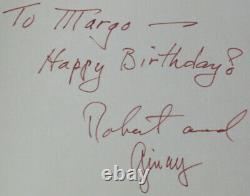 To Margo —
Happy Birthday!
Robert and
Ginny
ebay